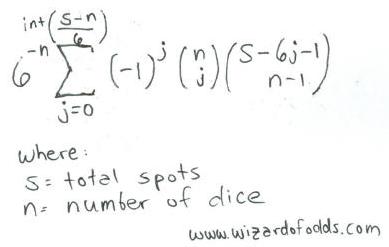 int(S-n/6)
6^-n Σ (-1)^j (n j) (S-6j-1 n-1)
j=0
where:
S= total spots
n= number of dice
www.wizardofodds.com